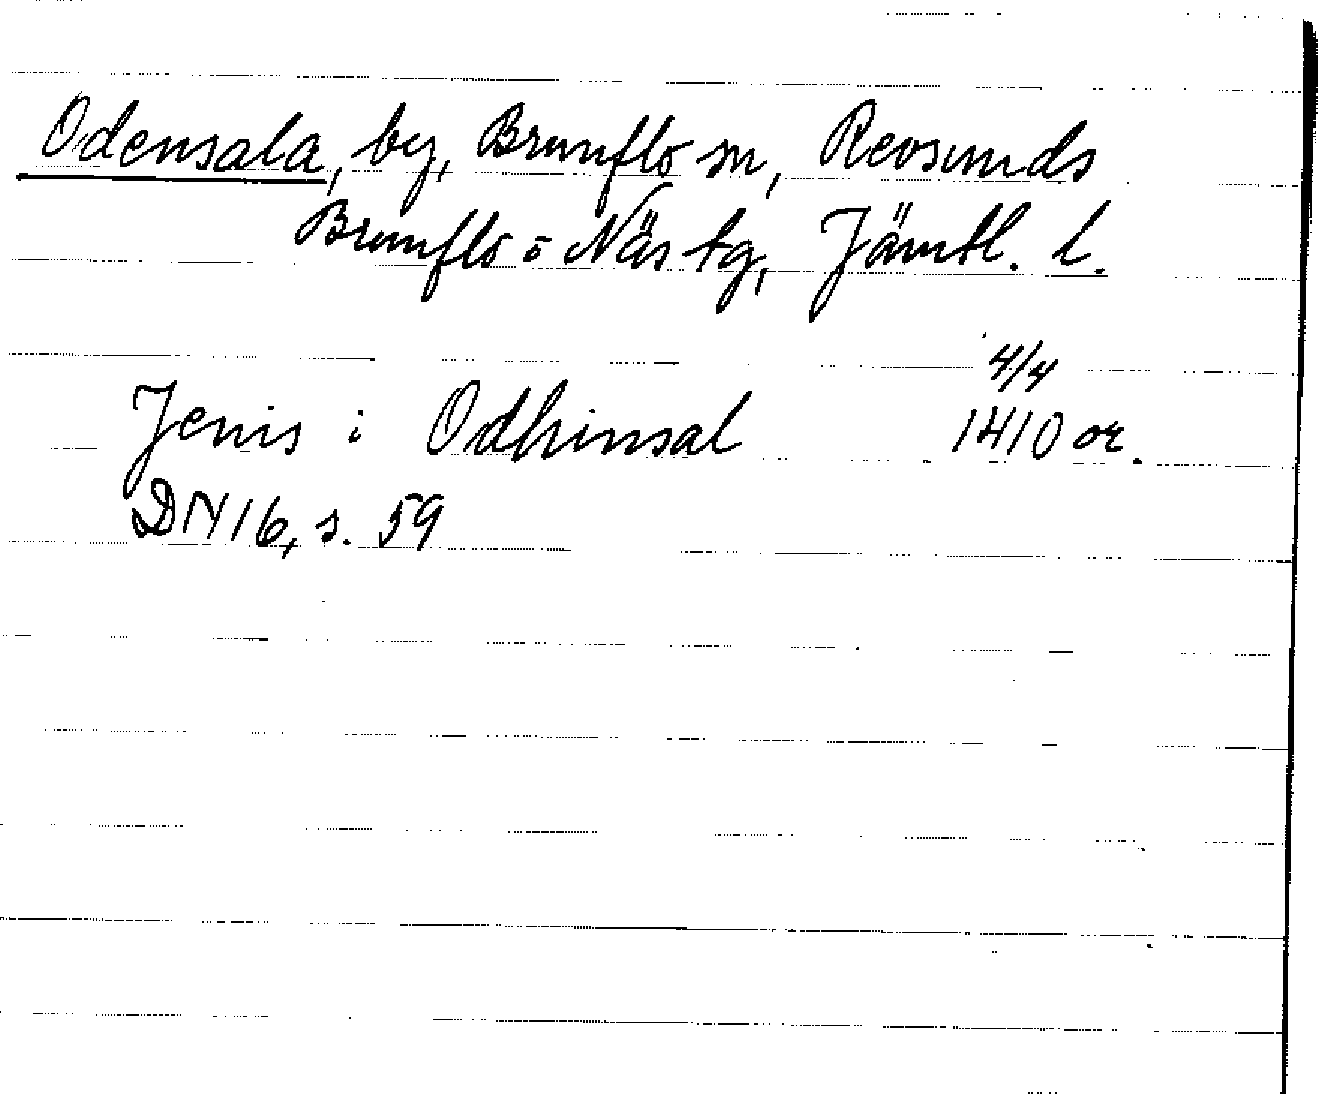 Odensala, by, Brunflo sn, Revsunds
Brunflo o Näs tg, Jämtl. l.
4/4
Jenis i Odhinsal 1410 or.
DN 16, s. 59